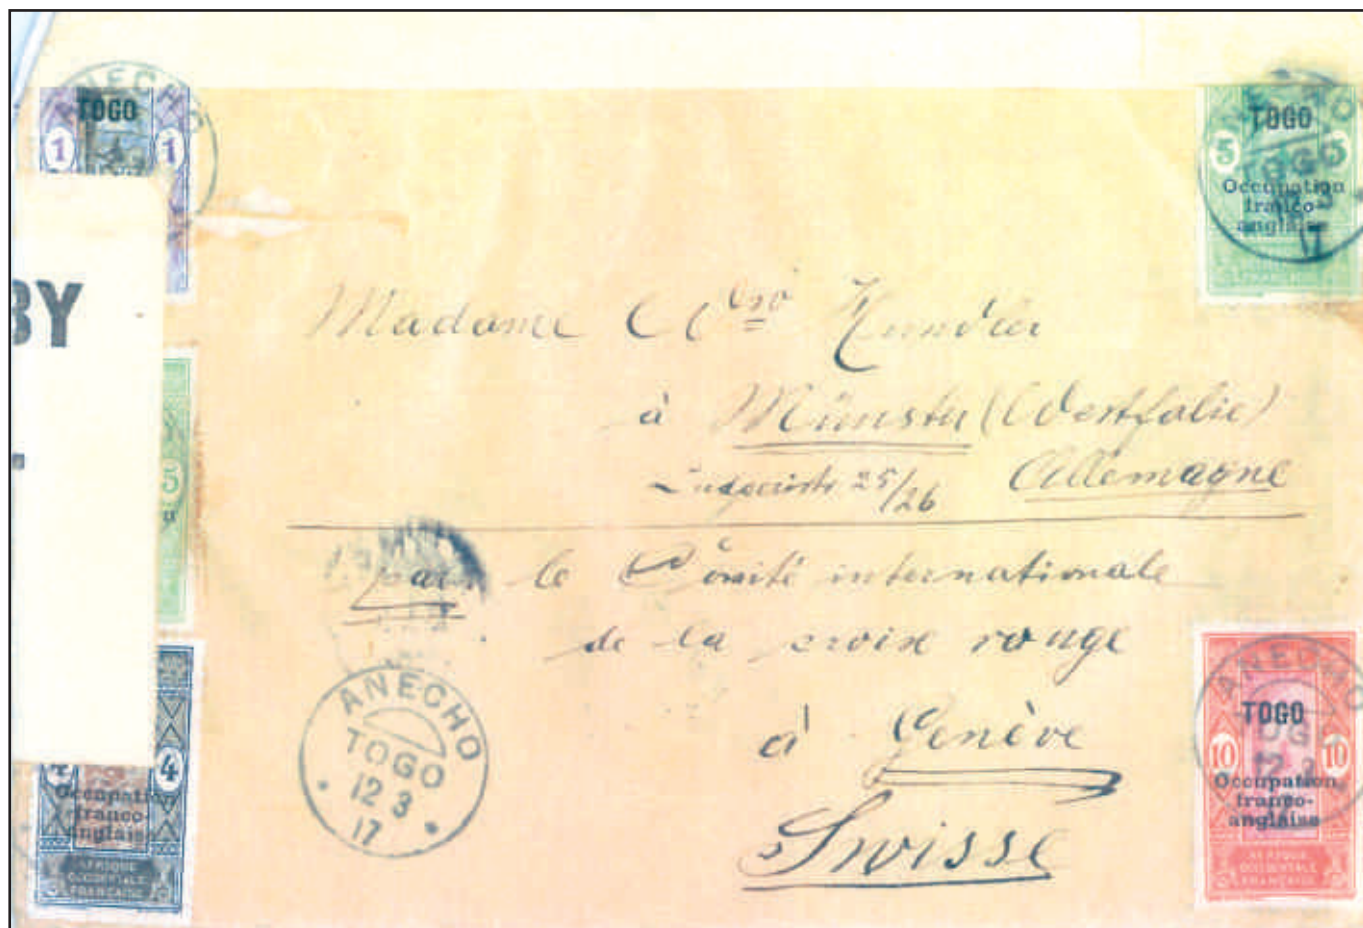 ANECHO
TOGO
1 1
BY
5
4
Occupation
franco-
anglaise
AFRIQUE
OCCIDENTALE
FRANÇAISE
ANECHO
TOGO
5 5
TOGO
Occupation
franco-
anglaise
17
Madame
à Münster (Westfalie)
25/26 Allemagne
par le Comité internationale
de la croix rouge
à Genève
Swisse
ANECHO
TOGO
12 3
17
ANECHO
TOGO
TOGO
12 3
10 10
Occupation
franco-
anglaise
AFRIQUE
OCCIDENTALE
FRANÇAISE